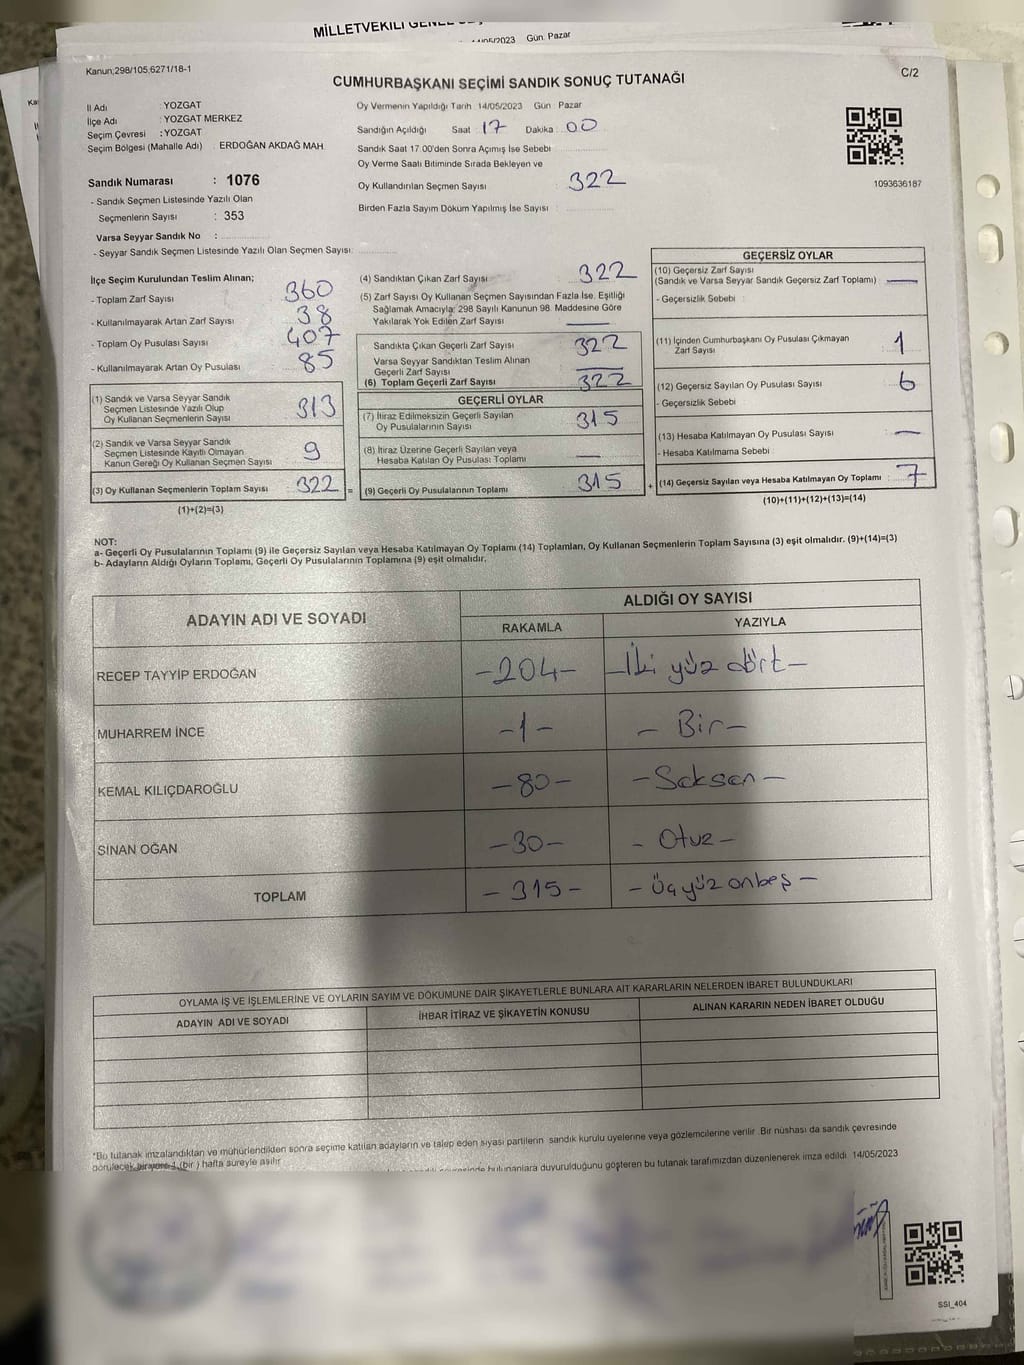 MİLLETVEKİLİ
/05/2023 Gün: Pazar
Kanun;298/105,6271/18-1
C/2
CUMHURBAŞKANI SEÇİMİ SANDIK SONUÇ TUTANAĞI
İl Adı : YOZGAT
İlçe Adı : YOZGAT MERKEZ
Seçim Çevresi : YOZGAT
Seçim Bölgesi (Mahalle Adı) : ERDOĞAN AKDAĞ MAH.
Sandık Numarası : 1076
- Sandık Seçmen Listesinde Yazılı Olan
Seçmenlerin Sayısı : 353
Varsa Seyyar Sandık No :
- Seyyar Sandık Seçmen Listesinde Yazılı Olan Seçmen Sayısı:
Oy Vermenin Yapıldığı Tarih: 14/05/2023 Gün : Pazar
Sandığın Açıldığı Saat : 17 Dakika : 00
Sandık Saat 17.00'den Sonra Açılmış İse Sebebi :
Oy Verme Saati Bitiminde Sırada Bekleyen ve
Oy Kullandırılan Seçmen Sayısı : 322
Birden Fazla Sayım Döküm Yapılmış İse Sayısı :
1093636187
İlçe Seçim Kurulundan Teslim Alınan;
- Toplam Zarf Sayısı : 360
- Kullanılmayarak Artan Zarf Sayısı : 38
- Toplam Oy Pusulası Sayısı : 407
- Kullanılmayarak Artan Oy Pusulası : 85
(1) Sandık ve Varsa Seyyar Sandık
Seçmen Listesinde Yazılı Olup
Oy Kullanan Seçmenlerin Sayısı : 313
(2) Sandık ve Varsa Seyyar Sandık
Seçmen Listesinde Kayıtlı Olmayan
Kanun Gereği Oy Kullanan Seçmen Sayısı : 9
(3) Oy Kullanan Seçmenlerin Toplam Sayısı : 322 =
(1)+(2)=(3)
(4) Sandıktan Çıkan Zarf Sayısı : 322
(5) Zarf Sayısı Oy Kullanan Seçmen Sayısından Fazla İse, Eşitliği
Sağlamak Amacıyla; 298 Sayılı Kanunun 98. Maddesine Göre
Yakılarak Yok Edilen Zarf Sayısı : —
Sandıkta Çıkan Geçerli Zarf Sayısı : 322
Varsa Seyyar Sandıktan Teslim Alınan
Geçerli Zarf Sayısı : —
(6) Toplam Geçerli Zarf Sayısı : 322
GEÇERLİ OYLAR
(7) İtiraz Edilmeksizin Geçerli Sayılan
Oy Pusulalarının Sayısı : 315
(8) İtiraz Üzerine Geçerli Sayılan veya
Hesaba Katılan Oy Pusulası Toplamı : —
(9) Geçerli Oy Pusulalarının Toplamı : 315 +
GEÇERSİZ OYLAR
(10) Geçersiz Zarf Sayısı
(Sandık ve Varsa Seyyar Sandık Geçersiz Zarf Toplamı) : —
- Geçersizlik Sebebi :
(11) İçinden Cumhurbaşkanı Oy Pusulası Çıkmayan
Zarf Sayısı : 1
(12) Geçersiz Sayılan Oy Pusulası Sayısı : 6
- Geçersizlik Sebebi :
(13) Hesaba Katılmayan Oy Pusulası Sayısı : —
- Hesaba Katılmama Sebebi :
(14) Geçersiz Sayılan veya Hesaba Katılmayan Oy Toplamı : 7
(10)+(11)+(12)+(13)=(14)
NOT:
a- Geçerli Oy Pusulalarının Toplamı (9) ile Geçersiz Sayılan veya Hesaba Katılmayan Oy Toplamı (14) Toplamları, Oy Kullanan Seçmenlerin Toplam Sayısına (3) eşit olmalıdır. (9)+(14)=(3)
b- Adayların Aldığı Oyların Toplamı, Geçerli Oy Pusulalarının Toplamına (9) eşit olmalıdır.
ADAYIN ADI VE SOYADI ALDIĞI OY SAYISI
RAKAMLA YAZIYLA
RECEP TAYYİP ERDOĞAN -204- -İki yüz dört-
MUHARREM İNCE -1- - Bir-
KEMAL KILIÇDAROĞLU -80- -Seksen-
SİNAN OĞAN -30- - Otuz-
TOPLAM -315- -Üçyüz onbeş-
OYLAMA İŞ VE İŞLEMLERİNE VE OYLARIN SAYIM VE DÖKÜMÜNE DAİR ŞİKAYETLERLE BUNLARA AİT KARARLARIN NELERDEN İBARET BULUNDUKLARI
ADAYIN ADI VE SOYADI İHBAR İTİRAZ VE ŞİKAYETİN KONUSU ALINAN KARARIN NEDEN İBARET OLDUĞU
*Bu tutanak imzalandıktan ve mühürlendikten sonra seçime katılan adayların ve talep eden siyasi partilerin sandık kurulu üyelerine veya gözlemcilerine verilir. Bir nüshası da sandık çevresinde
görülecek bir yere 1 (bir ) hafta süreyle asılır.
bulunanlara duyurulduğunu gösteren bu tutanak tarafımızdan düzenlenerek imza edildi. 14/05/2023
SSI_404